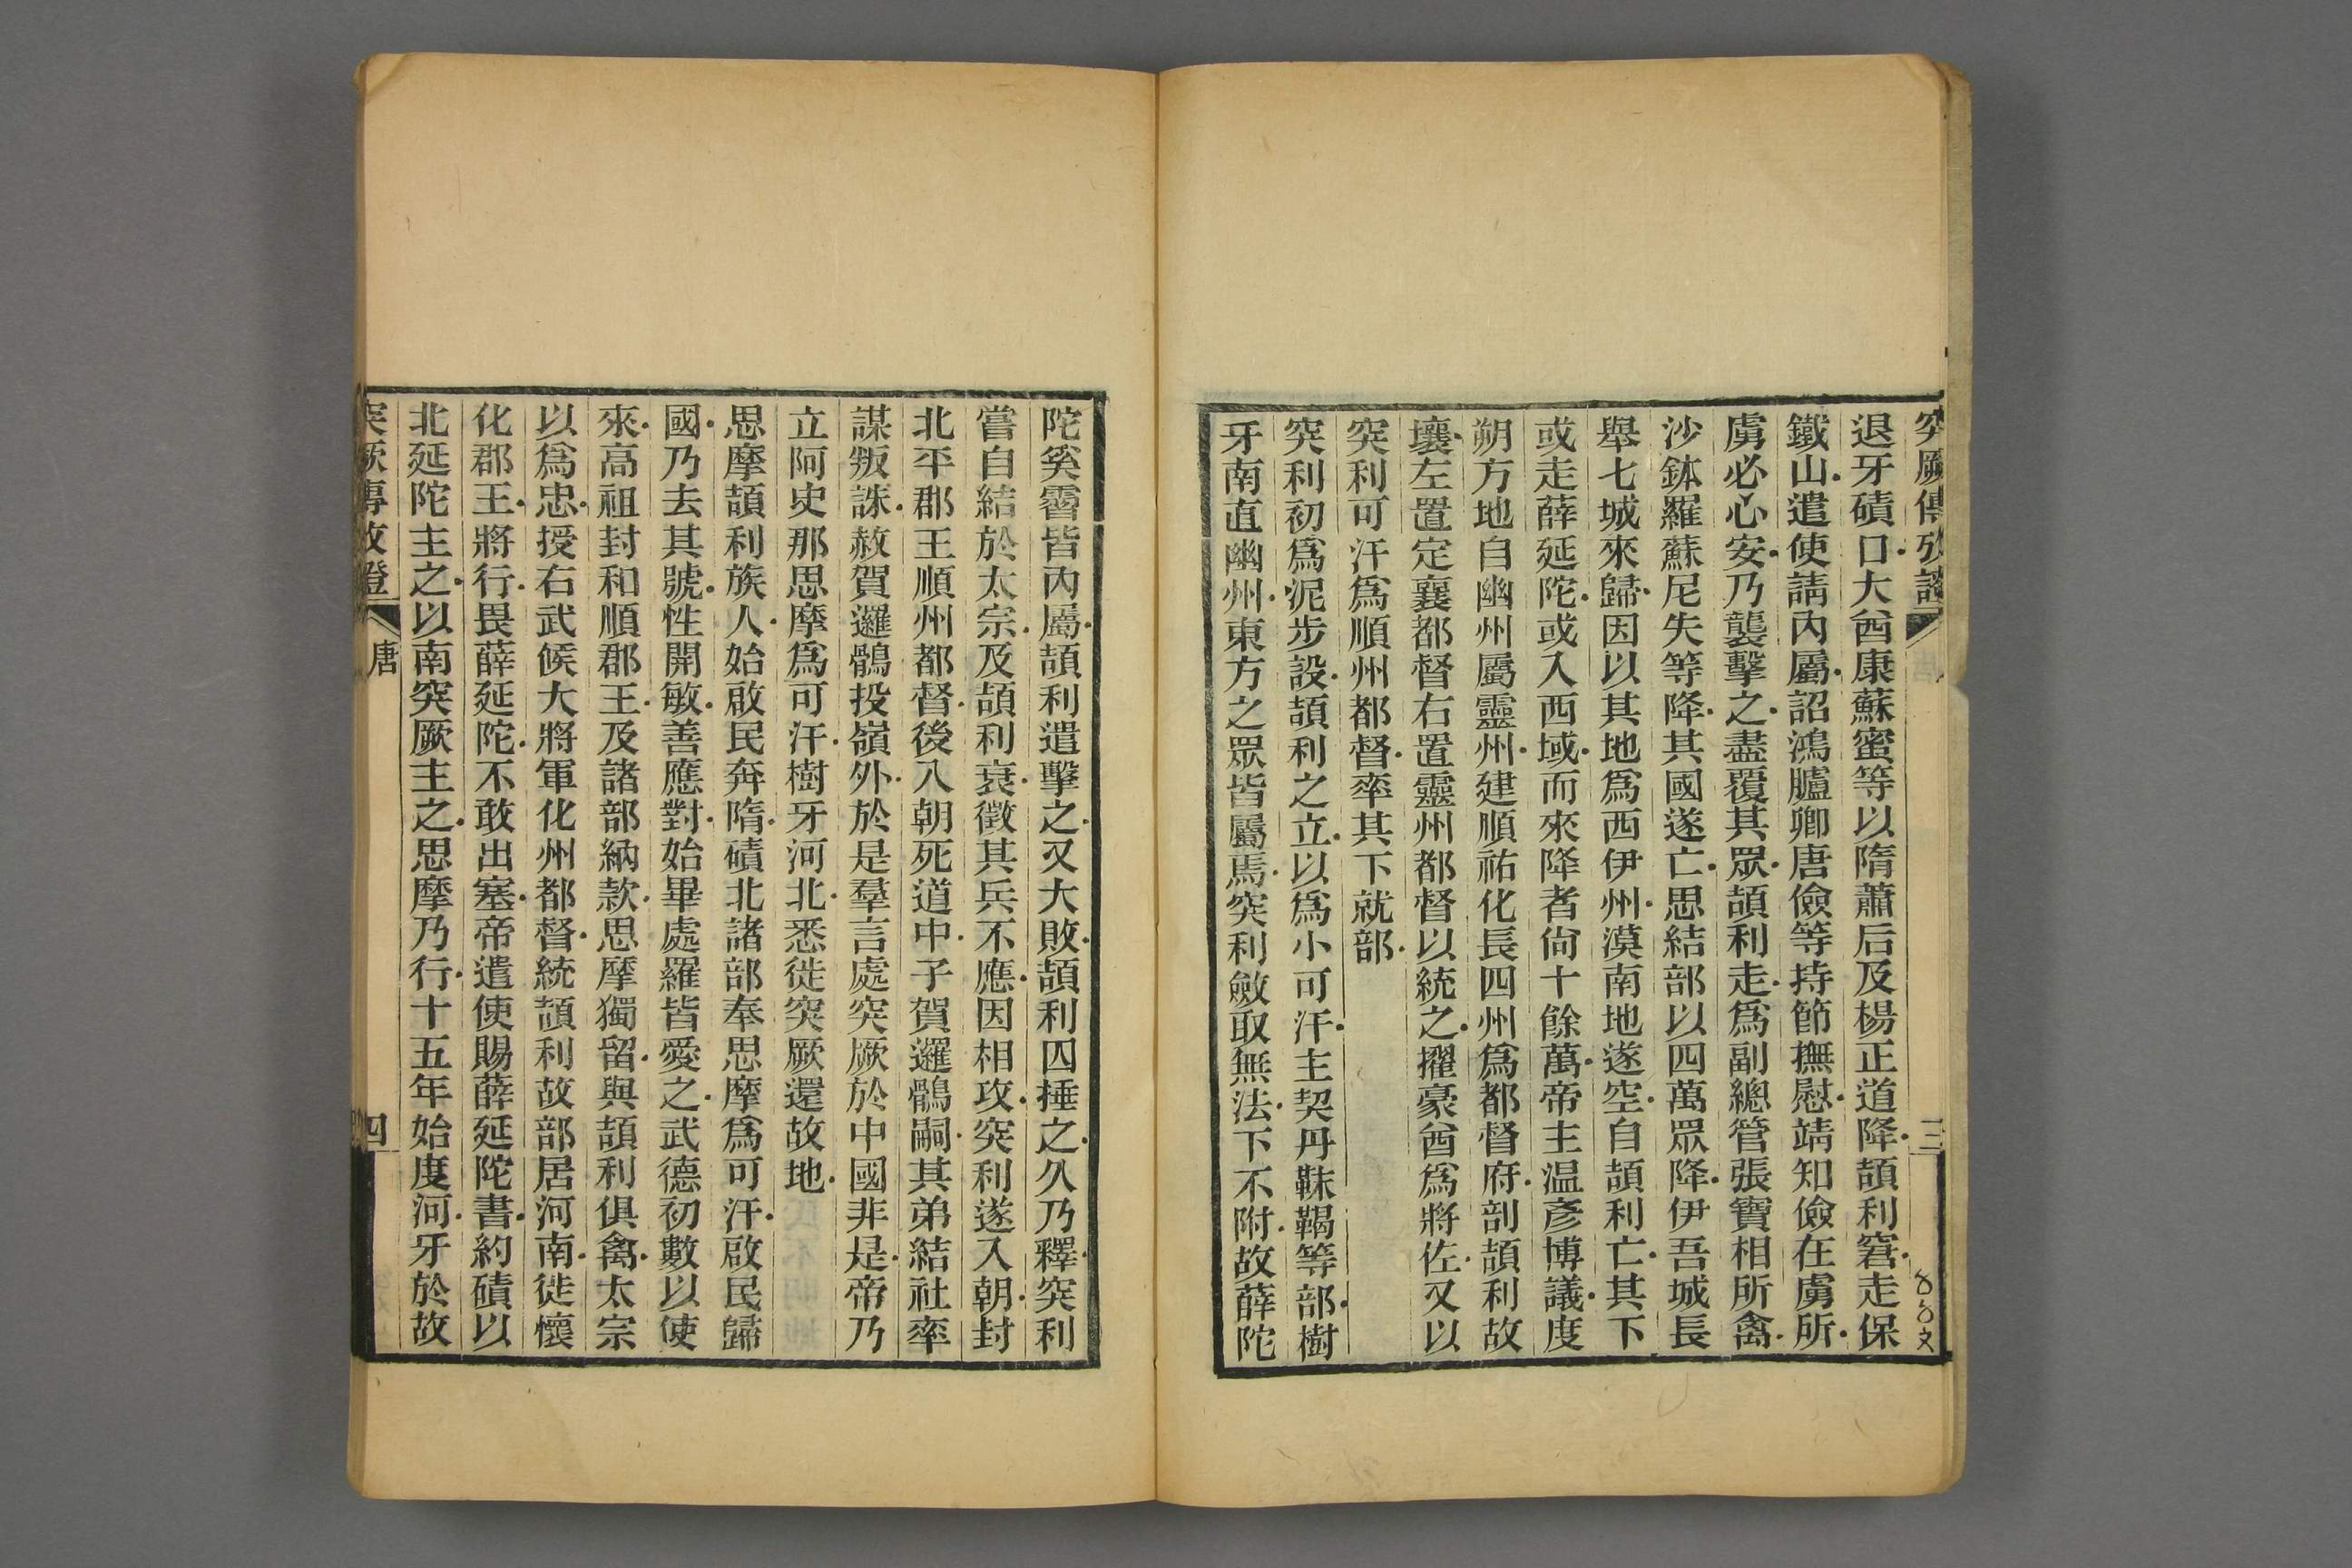 突厥傳攷證
三
退牙磧口大酋康蘇蜜等以隋蕭后及楊正道降頡利窘走保
鐵山遣使請內屬詔鴻臚卿唐儉等持節撫慰靖知儉在虜所
虜必心安乃襲擊之盡覆其眾頡利走爲副總管張寶相所禽
沙鉢羅蘇尼失等降其國遂亡思結部以四萬眾降伊吾城長
舉七城來歸因以其地爲西伊州漠南地遂空自頡利亡其下
或走薛延陀或入西域而來降者尙十餘萬帝主温彥博議度
朔方地自幽州屬靈州建順祐化長四州爲都督府剖頡利故
壤左置定襄都督右置靈州都督以統之擢豪酋爲將佐又以
突利可汗爲順州都督率其下就部
突利初爲泥步設頡利之立以爲小可汗主契丹靺鞨等部樹
牙南直幽州東方之眾皆屬焉突利斂取無法下不附故薛陀
陀奚霫皆內屬頡利遣擊之又大敗頡利囚捶之久乃釋突利
嘗自結於太宗及頡利衰徵其兵不應因相攻突利遂入朝封
北平郡王順州都督後入朝死道中子賀邏鶻嗣其弟結社率
謀叛誅赦賀邏鶻投嶺外於是羣言處突厥於中國非是帝乃
立阿史那思摩爲可汗樹牙河北悉徙突厥還故地
思摩頡利族人始啟民奔隋磧北諸部奉思摩爲可汗啟民歸
國乃去其號性開敏善應對始畢處羅皆愛之武德初數以使
來高祖封和順郡王及諸部納款思摩獨留與頡利俱禽太宗
以爲忠授右武候大將軍化州都督統頡利故部居河南徙懷
化郡王將行畏薛延陀不敢出塞帝遣使賜薛延陀書約磧以
北延陀主之以南突厥主之思摩乃行十五年始度河牙於故
突厥傳攷證
唐
四